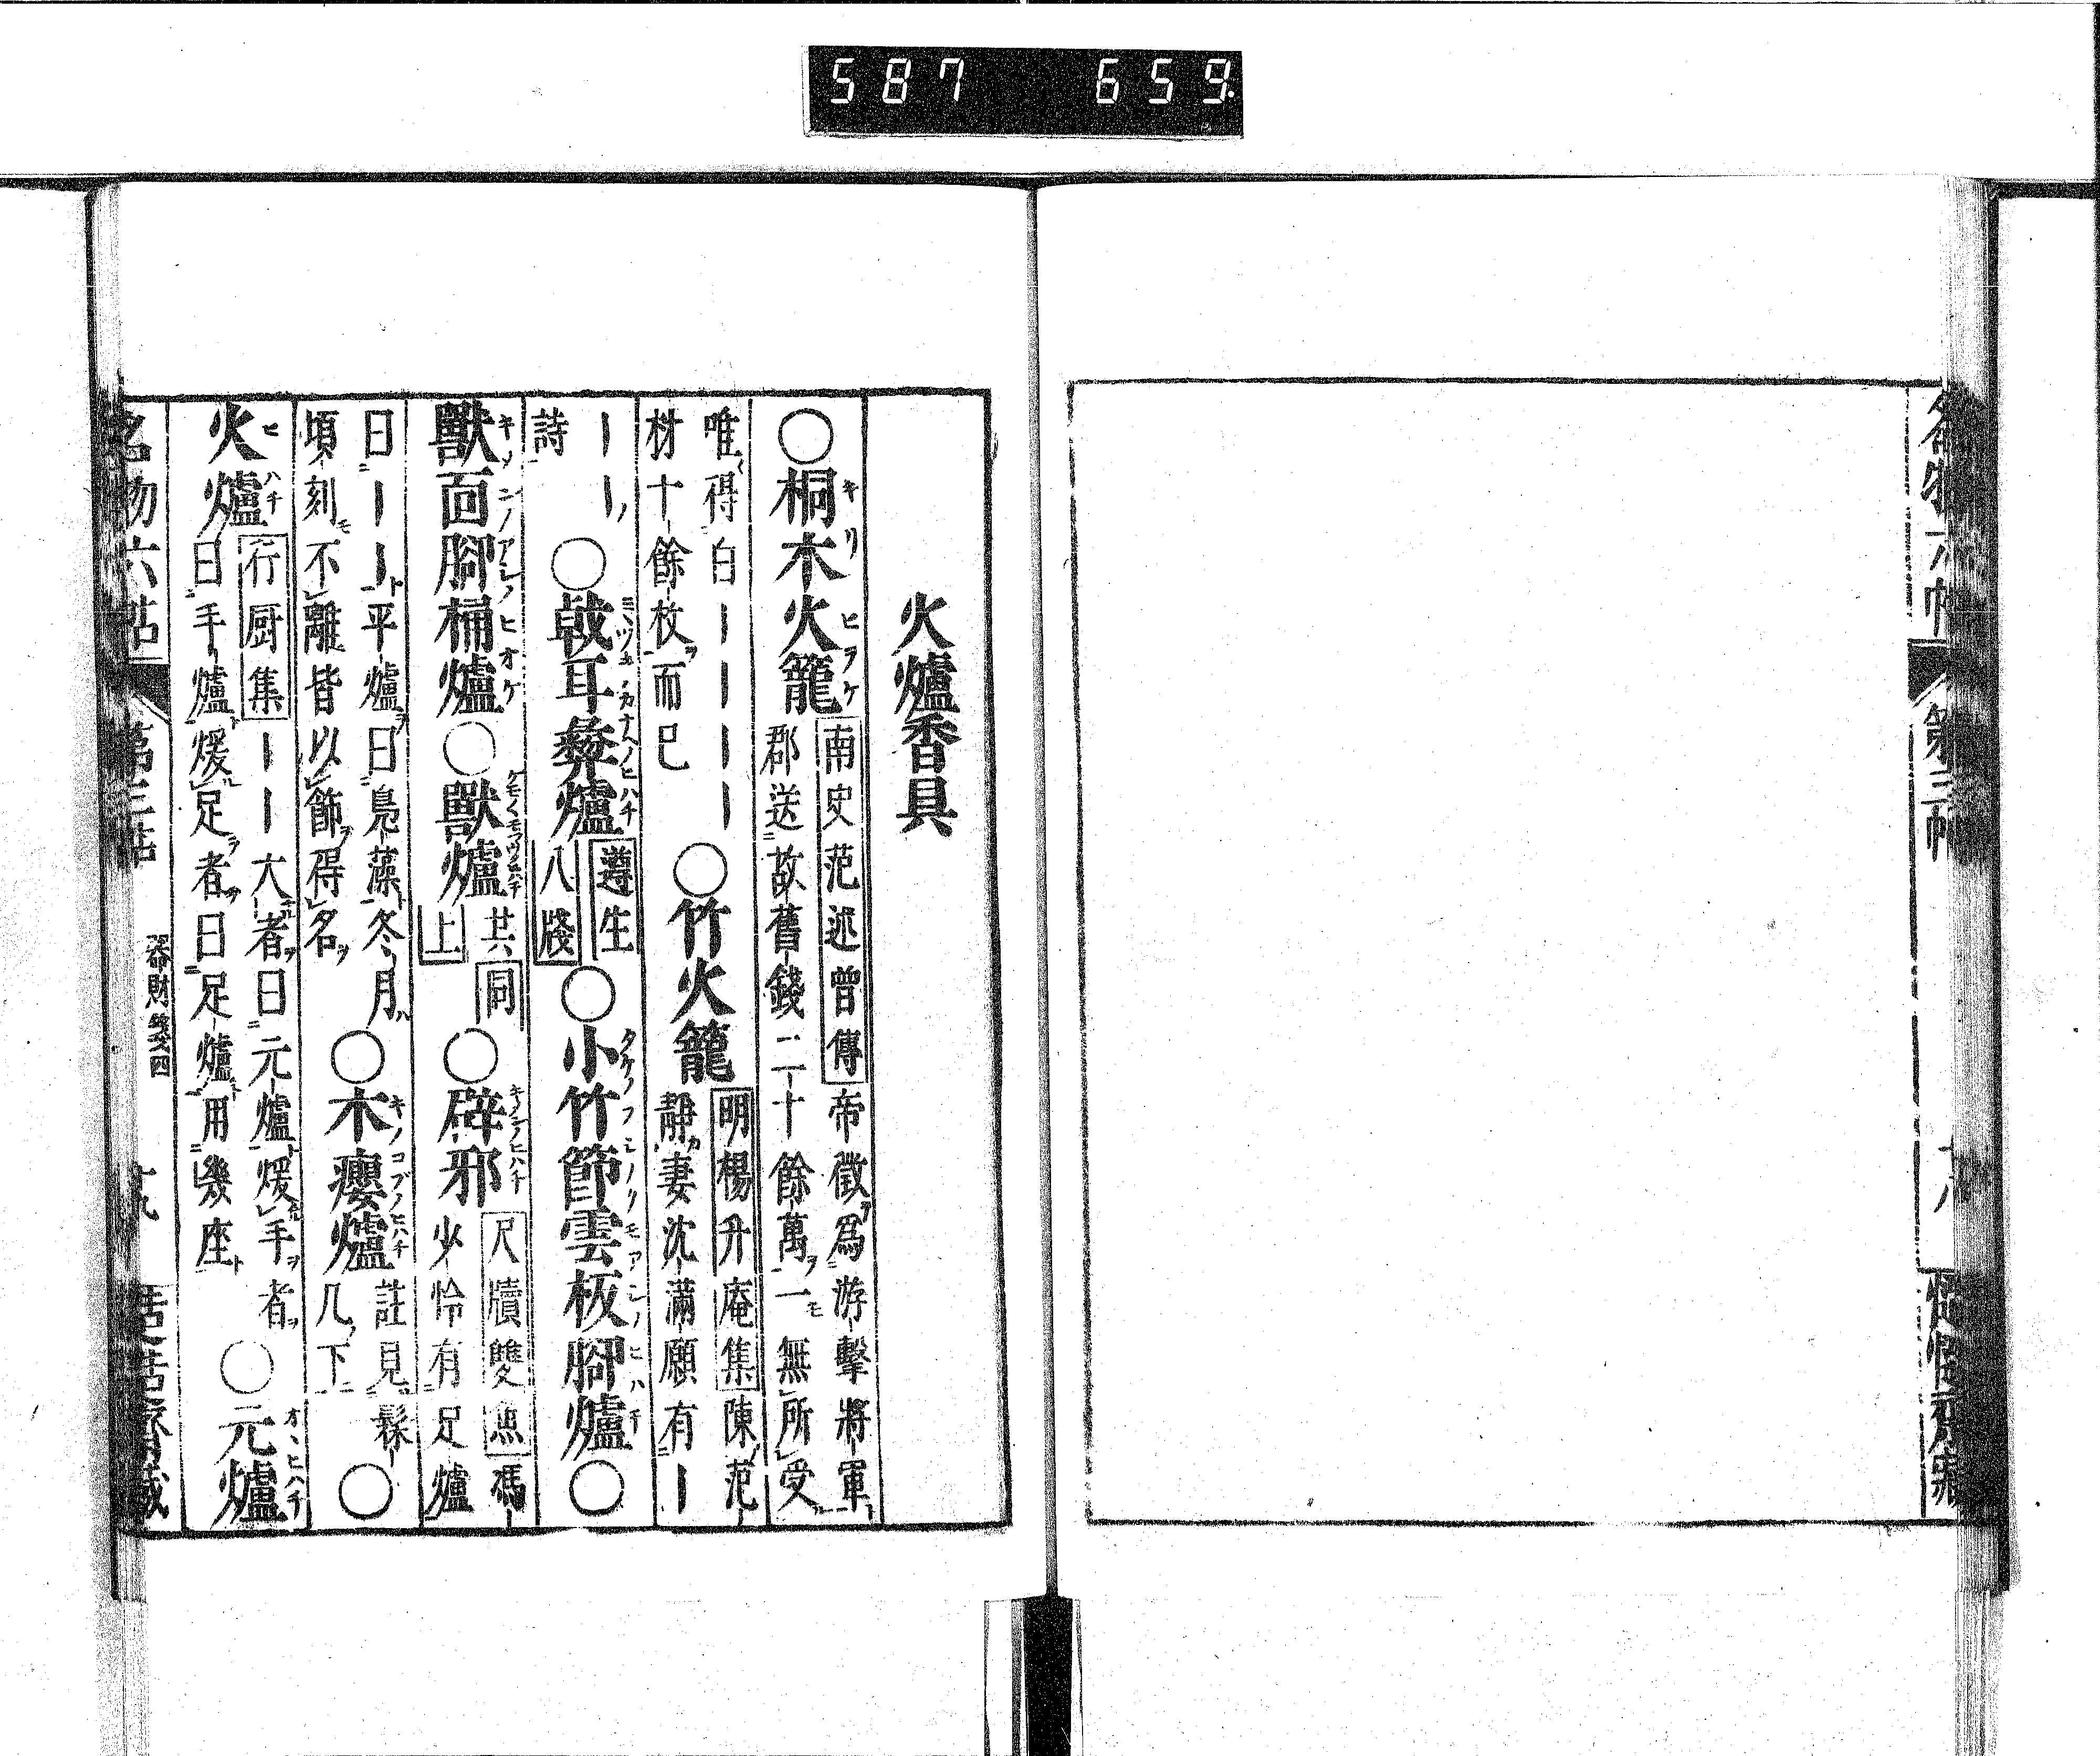 587 659
名物六帖 第三帖 十八
火爐香具
○桐木火籠 南史范述曾傳 帝徵爲游擊將軍
郡送故舊錢二十餘萬一無所受
唯得白丨丨丨丨
材十餘枚而已 ○竹火籠 明楊升庵集 陳范
靜妻沈滿願有丨
丨丨
詩 ○戟耳彝爐 遵生
八牋 ○小竹節雲板脚爐 ○
獸面脚桶爐 ○獸爐 共同
上 ○辟邪 尺牘雙魚 馮
少怜有足爐
曰丨丨平爐曰鳧藻冬月
頃刻不離皆以飾得名 ○木癭爐 註見髹
几下 ○
火爐 行厨集 丨丨大者曰元爐煖手者
曰手爐煖足者曰足爐用幾座 ○元爐
名物六帖 第三帖 器財箋四 十九